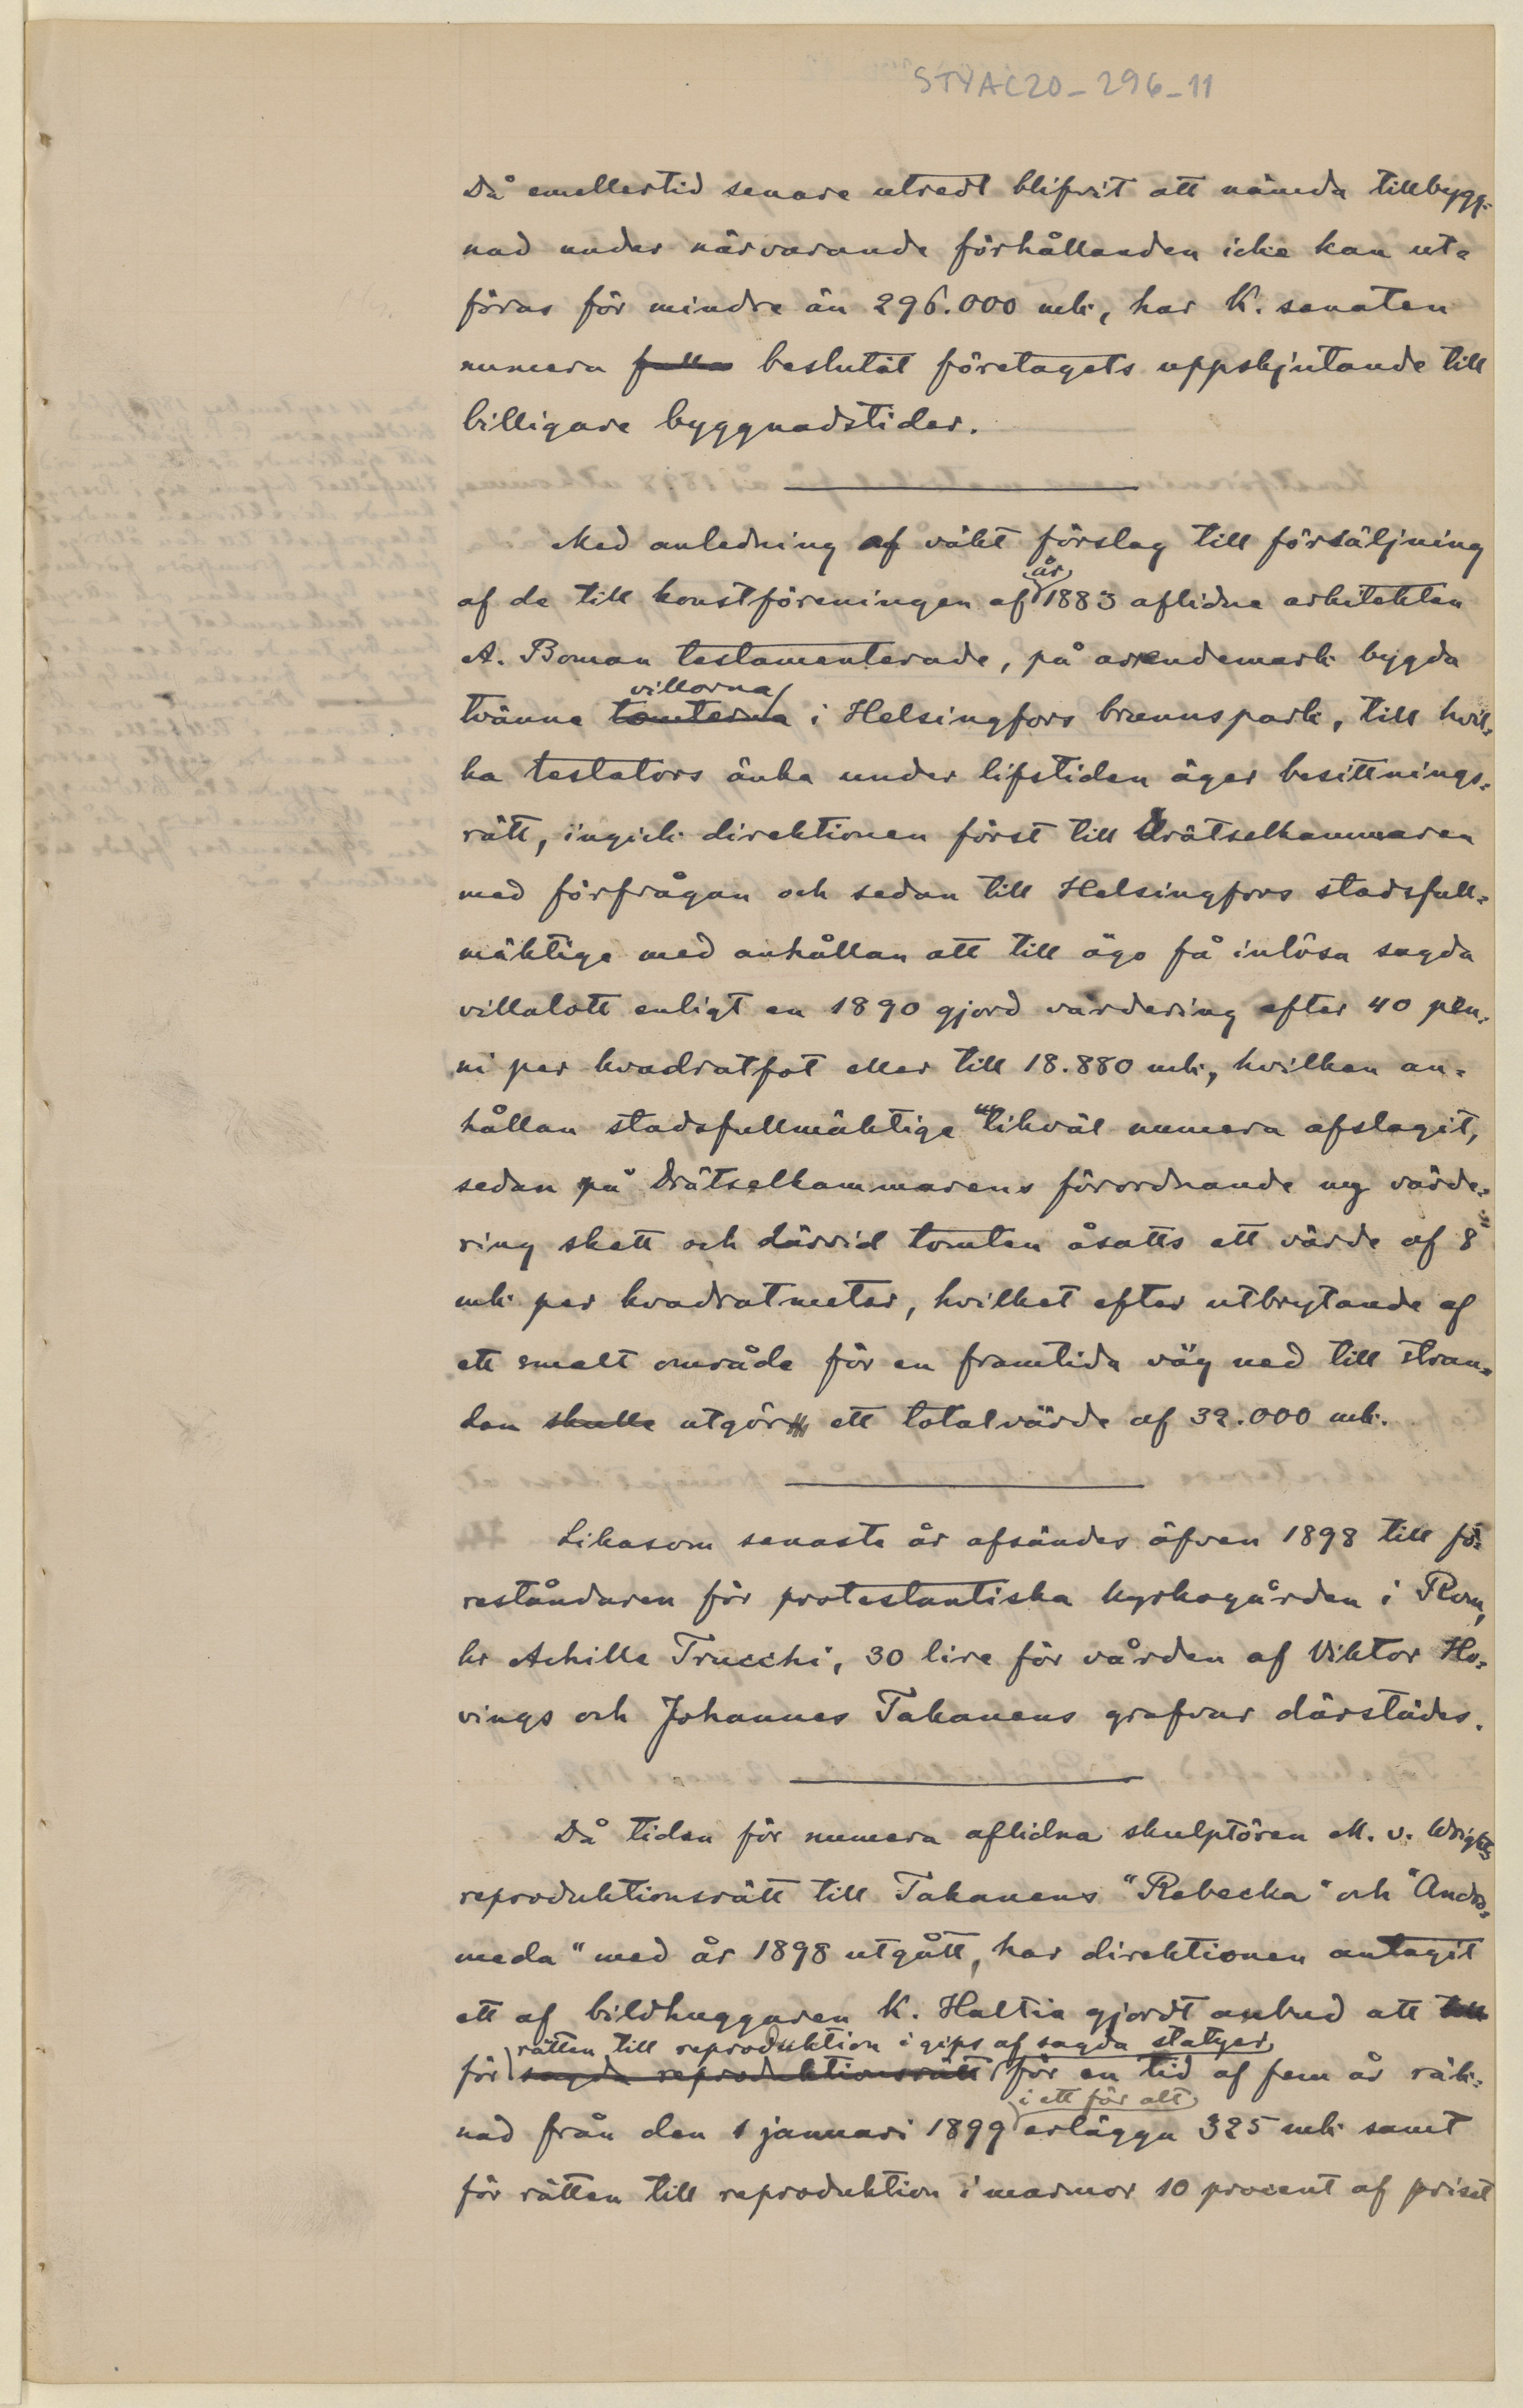 STYAC20-296-11
Då emellertid senare utredt blifvit att nämda tillbygg-
nad under närvarande förhållanden icke kan ut-
föras för mindre än 296.000 mk, har K. senaten
numera beslutat företagets uppskjutande till
billigare byggnadstider.
Med anledning af väkt förslag till försäljning
år
af de till konstföreningen af 1883 aflidne arkitekten
A. Boman testamenterade, på arrendemark bygda
villorna
tvänne tomterna i Helsingfors brunnspark, till hvil-
ka testators änka under lifstiden äger besittnings-
rätt, ingick direktionen först till Drätselkammaren
med förfrågan och sedan till Helsingfors stadsfull-
mäktige med anhållan att till ägo få inlösa sagda
villalott enligt en 1890 gjord värdering efter 40 pen-
ni per kvadratfot eller till 18.880 mk, hvilken an-
hållan stadsfullmäktige likväl numera afslagit,
sedan på Drätselkammarens förordnande ny värde-
ring skett och därvid tomten åsatts ett värde af 8
mk per kvadratmeter, hvilket efter utbrytande af
ett smalt område för en framtida väg ned till stran-
den skulle utgör ett totalvärde af 32.000 mk.
Likasom senaste år afsändes äfven 1898 till fö-
reståndaren för protestantiska kyrkogården i Rom,
hr Achille Trucchi, 30 lire för vården af Viktor Ho-
vings och Johannes Takanens grafvar därstädes.
Då tiden för numera aflidna skulptören M. v. Wrights
reproduktionsrätt till Takanens "Rebecka" och "Andro-
meda" med år 1898 utgått, har direktionen antagit
ett af bildhuggaren K. Haltia gjordt anbud att
rätten till reproduktion i gips af sagda statyer
för sagda reproduktionsrätt för en tid af fem år räk-
i ett för allt
nad från den 1 januari 1899 erlägga 325 mk samt
för rätten till reproduktion i marmor 10 procent af priset